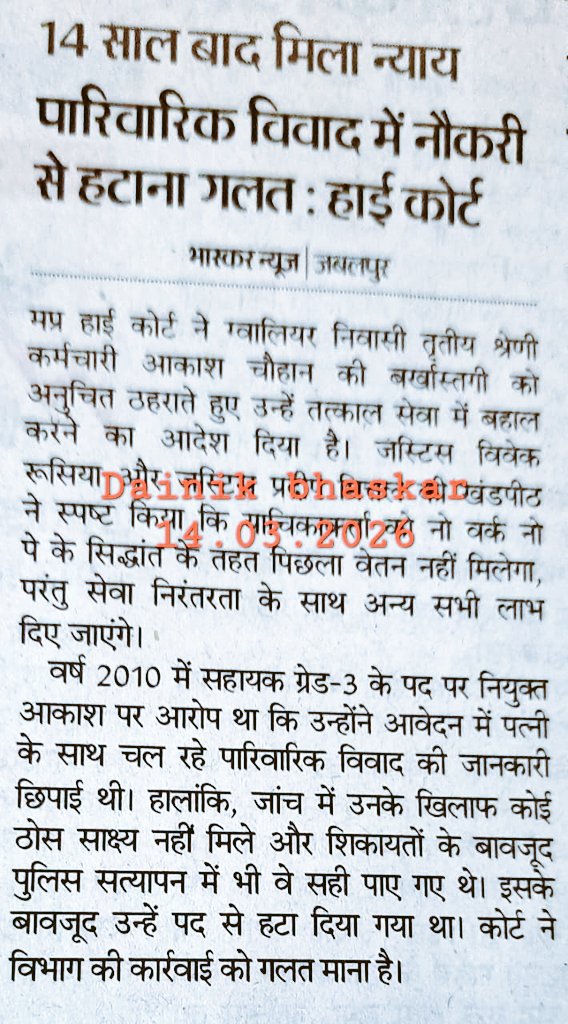 14 साल बाद मिला न्याय
पारिवारिक विवाद में नौकरी
से हटाना गलत : हाई कोर्ट
भास्कर न्यूज | जबलपुर
मप्र हाई कोर्ट ने ग्वालियर निवासी तृतीय श्रेणी
कर्मचारी आकाश चौहान की बर्खास्तगी को
अनुचित ठहराते हुए उन्हें तत्काल सेवा में बहाल
करने का आदेश दिया है। जस्टिस विवेक
रूसिया और जस्टिस खंडपीठ
Dainik bhaskar
ने स्पष्ट किया कि को नो वर्क नो
14.03.2026
पे के सिद्धांत के तहत पिछला वेतन नहीं मिलेगा,
परंतु सेवा निरंतरता के साथ अन्य सभी लाभ
दिए जाएंगे।
वर्ष 2010 में सहायक ग्रेड-3 के पद पर नियुक्त
आकाश पर आरोप था कि उन्होंने आवेदन में पत्नी
के साथ चल रहे पारिवारिक विवाद की जानकारी
छिपाई थी। हालांकि, जांच में उनके खिलाफ कोई
ठोस साक्ष्य नहीं मिले और शिकायतों के बावजूद
पुलिस सत्यापन में भी वे सही पाए गए थे। इसके
बावजूद उन्हें पद से हटा दिया गया था। कोर्ट ने
विभाग की कार्रवाई को गलत माना है।